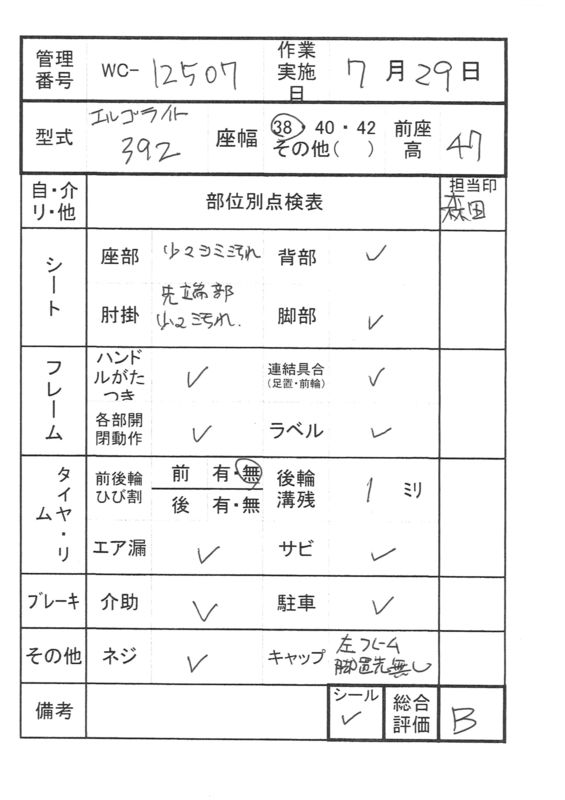 管理番号 WC-12507 作業実施日 7月29日
型式 エルゴライト 392 座幅 38・40・42 その他( ) 前座高 47
自・介 リ・他 部位別点検表 担当印 森田
シート 座部 少々シミ汚れ 背部 ✓
肘掛 先端部 少々汚れ. 脚部 ✓
フレーム ハンドルがたつき ✓ 連結具合 (足置・前輪) ✓
各部開閉動作 ✓ ラベル ✓
タイヤ・リム 前後輪ひび割 前 有・無 後輪溝残 1 ミリ
後 有・無
エア漏 ✓ サビ ✓
ブレーキ 介助 ✓ 駐車 ✓
その他 ネジ ✓ キャップ 左フレーム 脚置先無し
備考 シール ✓ 総合評価 B